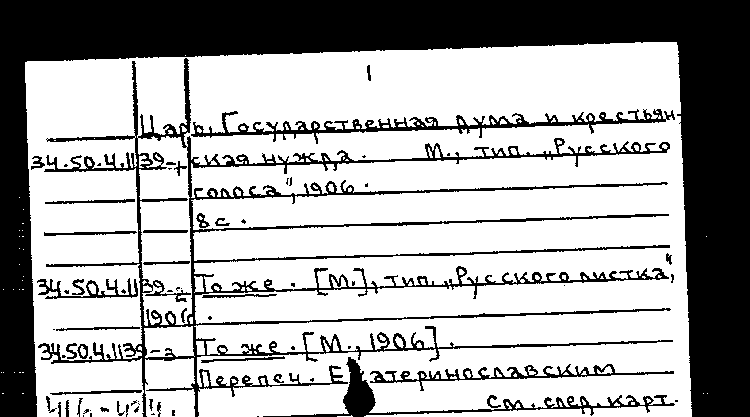 1
Царь, Государственная дума и крестьян-
34.50.4.1139-1 ская нужда. М., тип. „Русского
голоса“, 1906.
8 с.
34.50.4.1139-2 То же. [М.], тип. „Русского листка“,
1906.
34.50.4.1139-3 То же. [М., 1906].
Перепеч. Екатеринославским
см. след. карт.